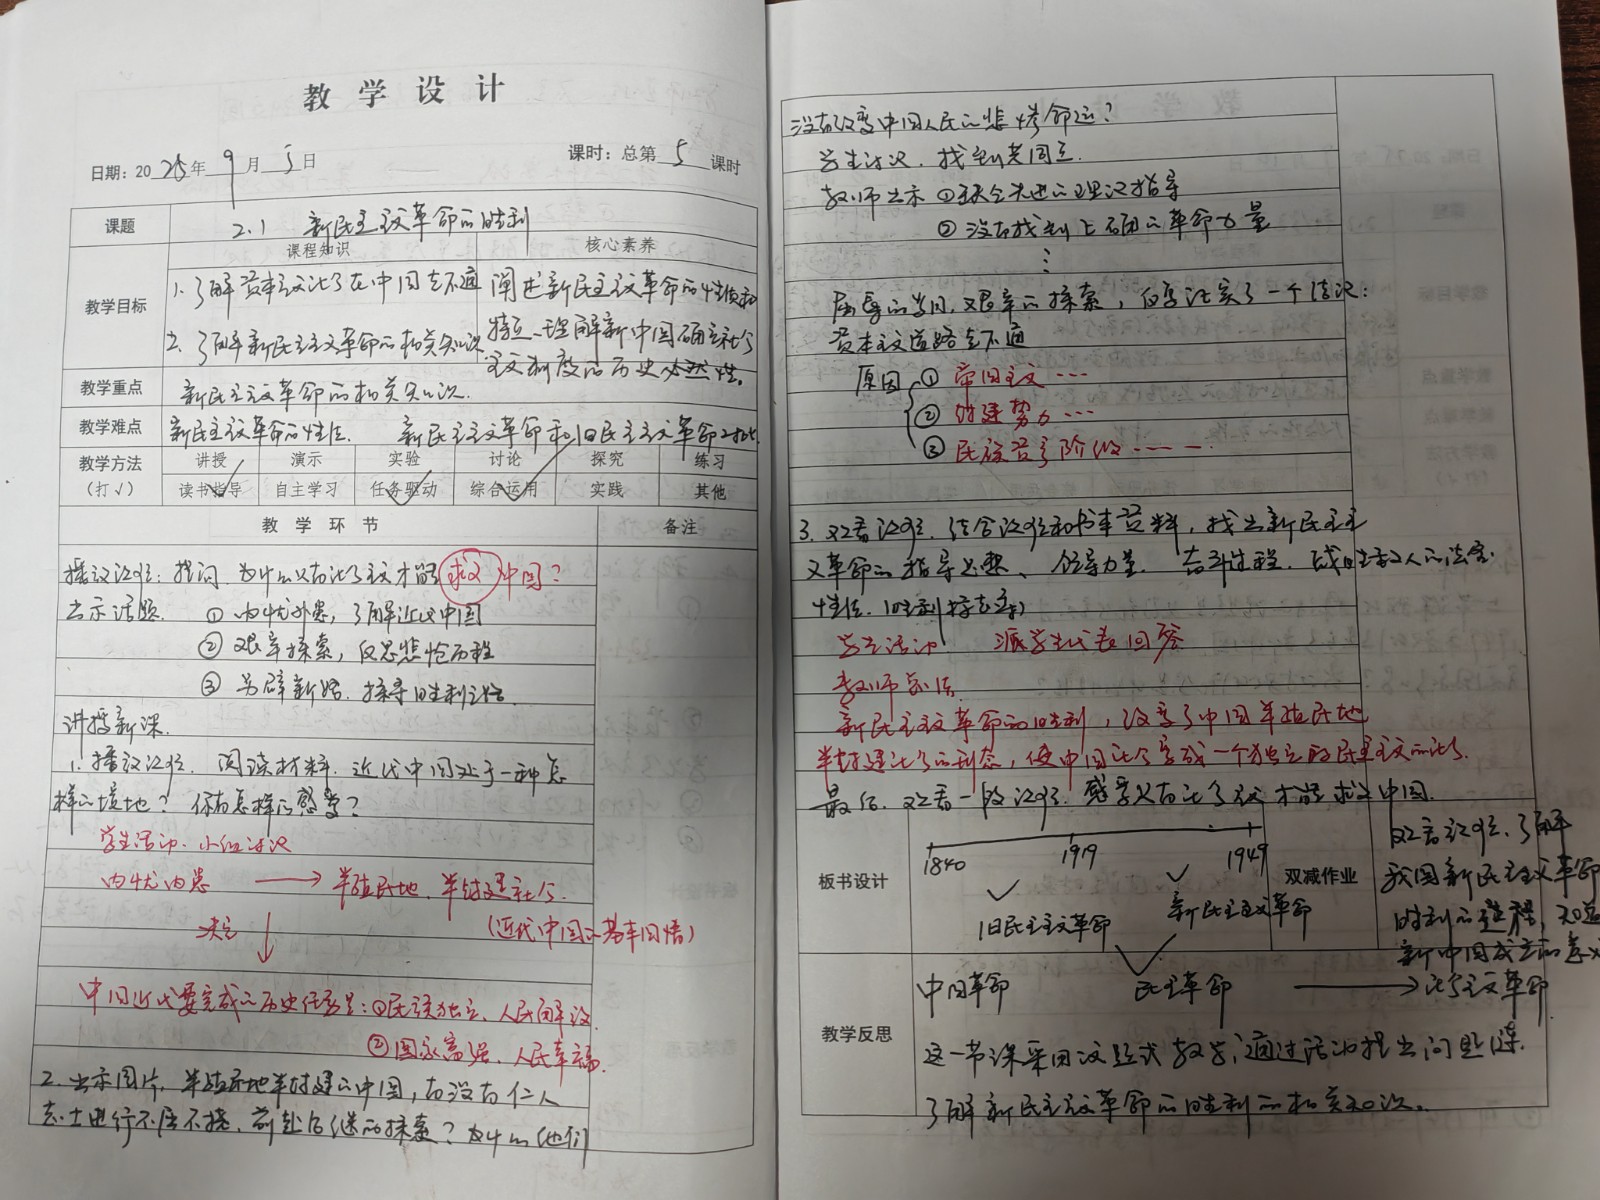 教学设计
日期：2025年9月5日
课时：总第5课时
课题
2.1 新民主主义革命的胜利
教学目标
课程知识
核心素养
1. 了解资本主义社会在中国走不通
2. 了解新民主主义革命的相关知识
阐述新民主主义革命的性质和
特点，理解新中国确立社会
主义制度的历史必然性。
教学重点
新民主主义革命的相关知识.
教学难点
新民主主义革命的性质. 新民主主义革命和旧民主主义革命对比
教学方法
（打√）
讲授 演示 实验 讨论 探究 练习
读书指导 自主学习 任务驱动 综合运用 实践 其他
教学环节
备注
播放视频：提问，为什么只有社会主义才能救中国？
出示话题 ①内忧外患，了解近代中国
②艰辛探索，反思悲怆历程
③另辟新路，探寻胜利之路
讲授新课.
1. 播放视频，阅读材料，近代中国处于一种怎
样的境地？你有怎样的感受？
学生活动，小组讨论
内忧内患 → 半殖民地、半封建社会.
（近代中国的基本国情）
决定 ↓
中国近代要完成的历史任务是：①民族独立、人民解放.
②国家富强、人民幸福.
2. 出示图片，半殖民地半封建的中国，有没有仁人
志士进行不屈不挠，前赴后继的探索？为什么他们
没有改变中国人民的悲惨命运？
学生讨论，找到共同点.
教师出示 ①缺乏先进的理论指导
②没有找到正确的革命力量
⋮
屈辱的岁月，艰辛的探索，们都证实了一个情况：
资本主义道路走不通
原因 ①帝国主义…
②封建势力…
③民族资产阶级……
3. 观看视频，结合视频和书本资料，找出新民主主
义革命的指导思想、领导力量、奋斗过程、战胜敌人的法宝.
性质、胜利标志等）
学生活动 派学生代表回答
教师总结
新民主主义革命的胜利，改变了中国半殖民地
半封建社会的形态，使中国社会变成一个独立的民主主义的社会.
最后，观看一段视频，感受只有社会主义才能救中国.
板书设计
1840 1919 1949
旧民主主义革命
新民主主义革命
中国革命 民主革命 → 社会主义革命
双减作业
观看视频，了解
我国新民主主义革命
胜利的进程，知道
新中国成立的意义
教学反思
这一节课采用议题式教学，通过活动提出问题，
了解新民主主义革命的胜利的相关知识.